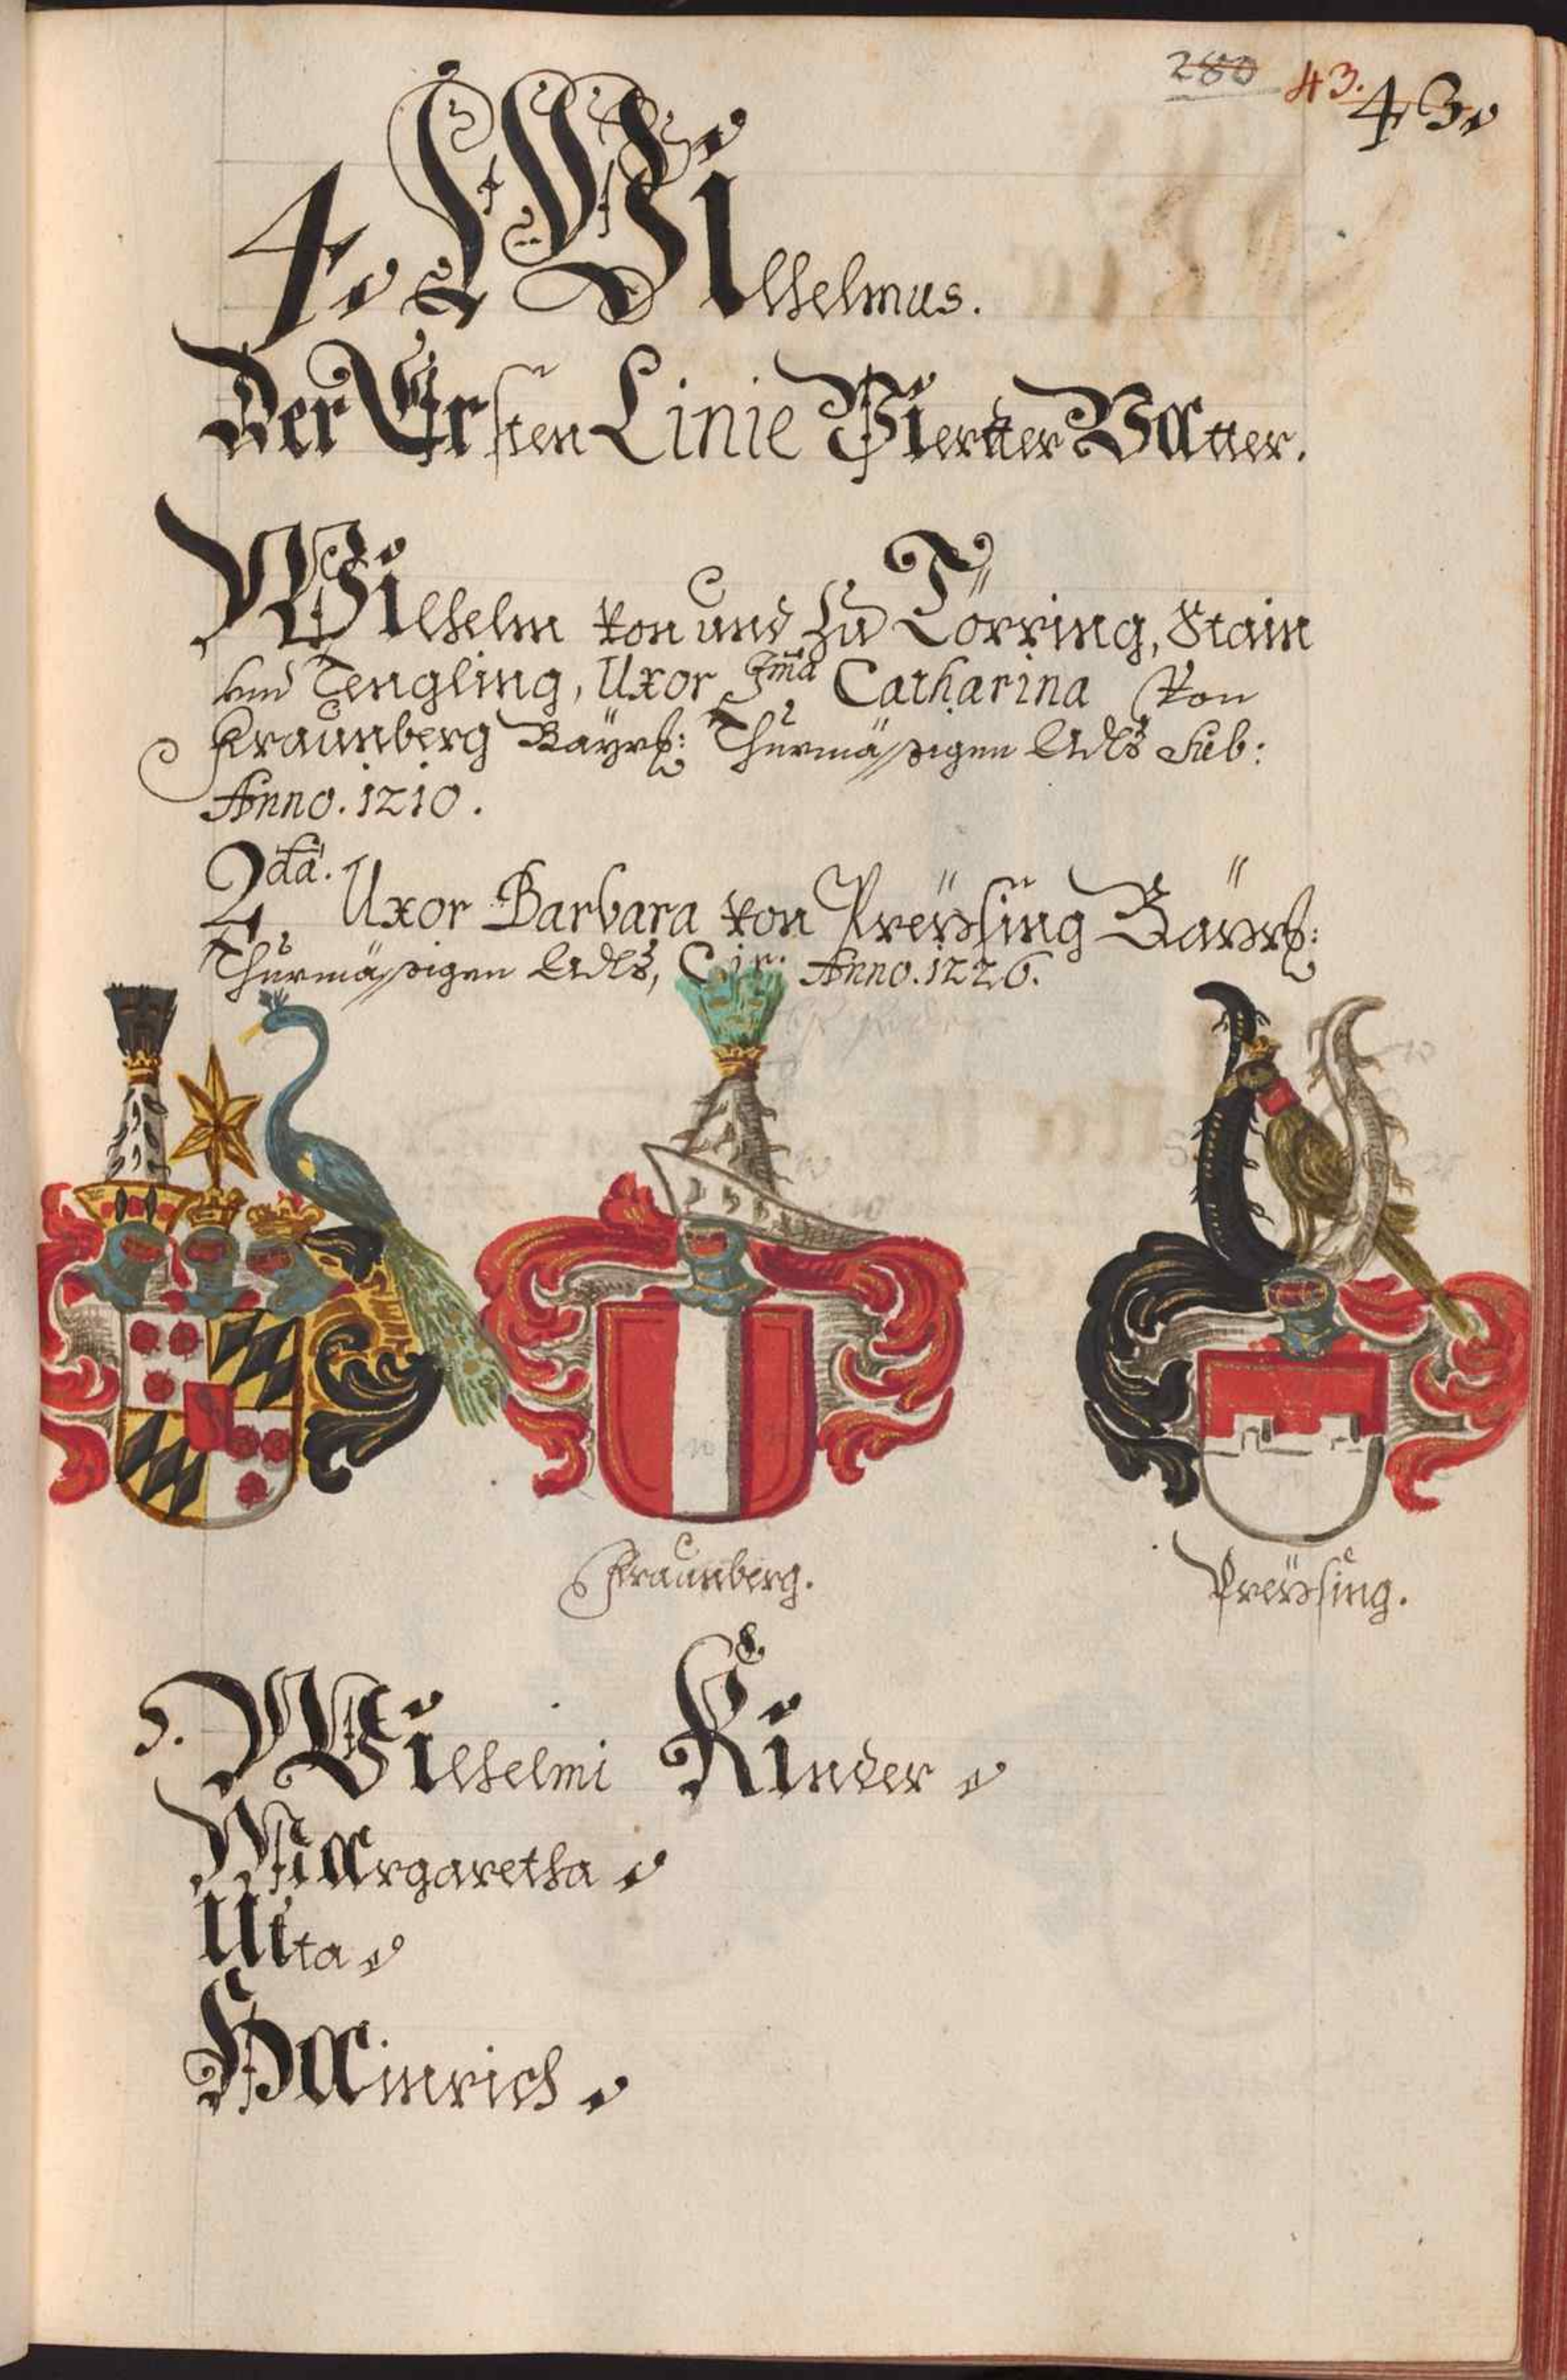 280 43. 43.
4. Wilhelmus.
Der Ersten Linie Vierter Vatter.
Wilhelm von und zu Törring, Stain
und Tengling, Uxor Ima Catharina von
Fraunberg Bayrs: Thurmäßigen Adls sub:
Anno. 1210.
2da. Uxor Barbara von Preysing Bayrs:
Thurmäßigen Adls, Cir: Anno. 1226.
Fraunberg.
Preysing.
5. Wilhelmi Kinder.
Margaretha.
Uta.
Hainrich.